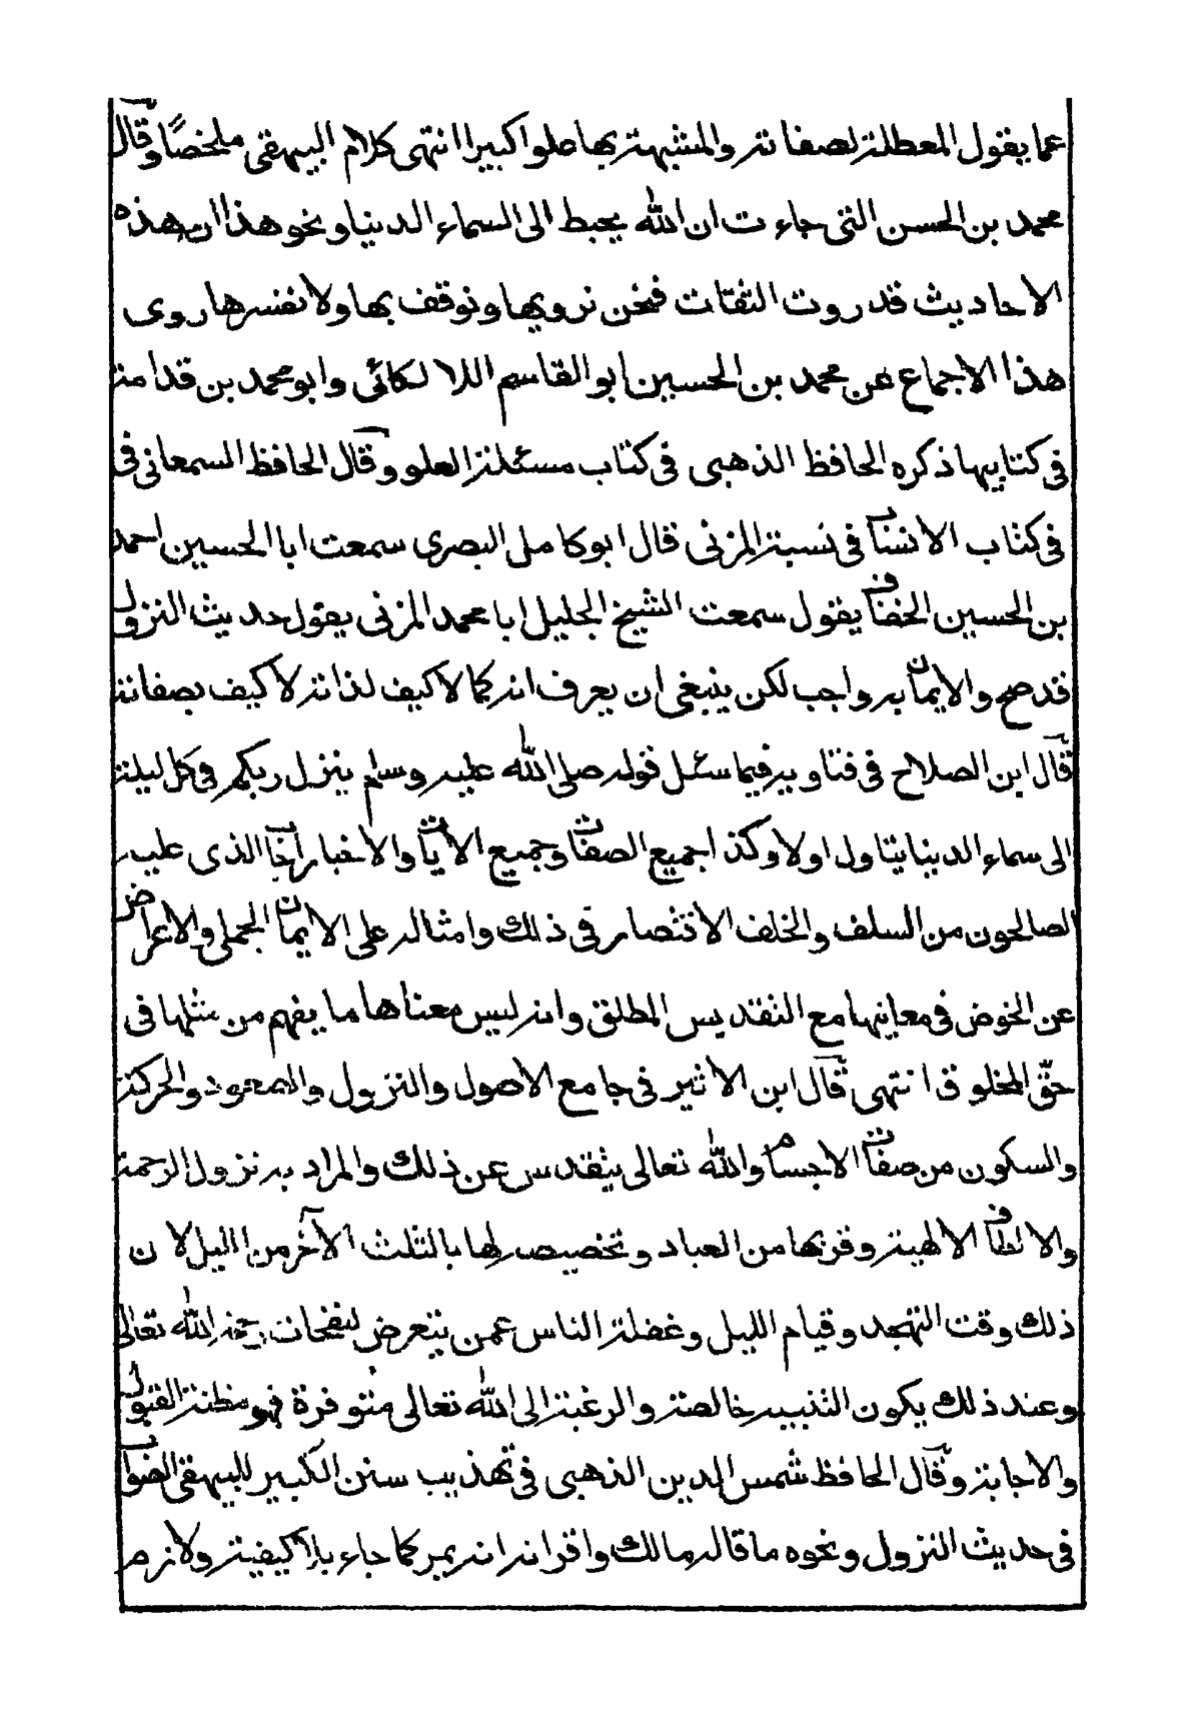 عما يقول المعطلة لصفاته والمشبهة بها علوا كبيرا انتهى كلام البيهقى ملخصًا وقال
محمد بن الحسن التى جاءت ان الله يهبط الى السماء الدنيا ونحو هذا ان هذه
الاحاديث قد روت الثقات فنحن نرويها ونوقف بها ولا نفسرها روى
هذا الاجماع عن محمد بن الحسين ابو القاسم اللالكائى وابو محمد بن قدامة
فى كتابيها ذكره الحافظ الذهبى فى كتاب مسئلة العلو وقال الحافظ السمعانى فى
فى كتاب الانساب فى نسبة المزنى قال ابو كامل البصرى سمعت ابا الحسين احمد
بن الحسين الخفاف يقول سمعت الشيخ الجليل ابا محمد المزنى يقول حديث النزول
قد صح والايمان به واجب لكن ينبغى ان يعرف انه كما لا كيف لذاته لا كيف بصفاته
قال ابن الصلاح فى فتاويه فيما سئل قوله صلى الله عليه وسلم ينزل ربكم فى كل ليلة
الى سماء الدنيا يتاول اولا وكذا جميع الصفات وجميع الآيات والاخبار اجاب الذى عليه
الصالحون من السلف والخلف الاقتصار فى ذلك وامثاله على الايمان الجملى والاعراض
عن الخوض فى معانيها مع التقديس المطلق وانه ليس معناها ما يفهم من مثلها فى
حقّ المخلوق انتهى قال ابن الاثير فى جامع الاصول والنزول والصعود والحركة
والسكون من صفات الاجسام والله تعالى يتقدس عن ذلك والمراد به نزول الرحمة
والالطاف الالهية وقربها من العباد وتخصيصه لها بالثلث الآخر من الليل لان
ذلك وقت التهجد وقيام الليل وغفلة الناس عمن يتعرض لنفحات رحمة الله تعالى
وعند ذلك يكون التنبيه خالصة والرغبة الى الله تعالى متوفرة فهو مظنة القبول
والاجابة وقال الحافظ شمس الدين الذهبى فى تهذيب سنن الكبير للبيهقى الصواب
فى حديث النزول ونحوه ما قاله مالك واقرانه انه يمر كما جاء بلا كيفية ولازم